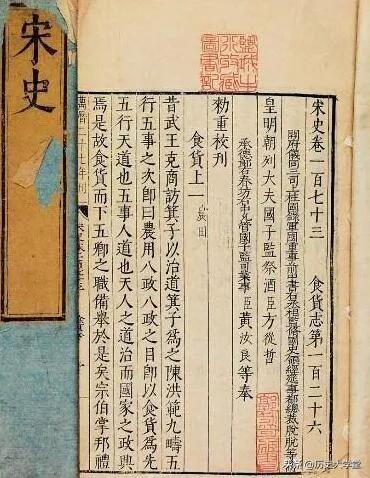 宋史
宋史卷一百七十三 食貨志第一百二十六
開府儀同三司上柱國錄軍國重事前中書右丞相監修國史領經筵事都總裁脫脫等修
皇明朝列大夫國子監祭酒臣方從哲
承德郎右春坊右中允管國子監司業事臣黃汝良等奉
勅重校刊
食貨上一 農田
昔武王克商訪箕子以治道箕子爲之陳洪範九疇五
行五事之次即曰農用八政八政之目即以食貨爲先
五行天道也五事人道也天人之道治而國家之政興
焉是故食貨而下五卿之職備舉於是矣宗伯掌邦禮
萬曆二十七年刊
头条 @历史大学堂